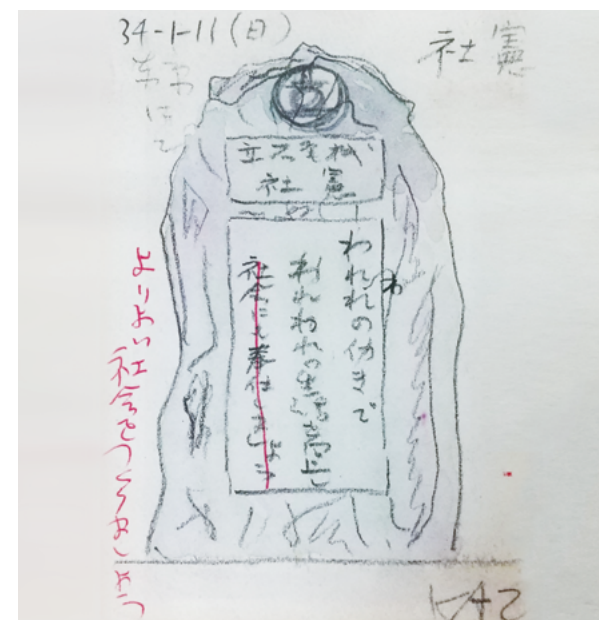 34-1-11(日)
社憲
立
立石電機
社憲
われわれの働きで
われわれの生活を向上し
社会にも奉仕しましょう
よりよい社会をつくりましょう